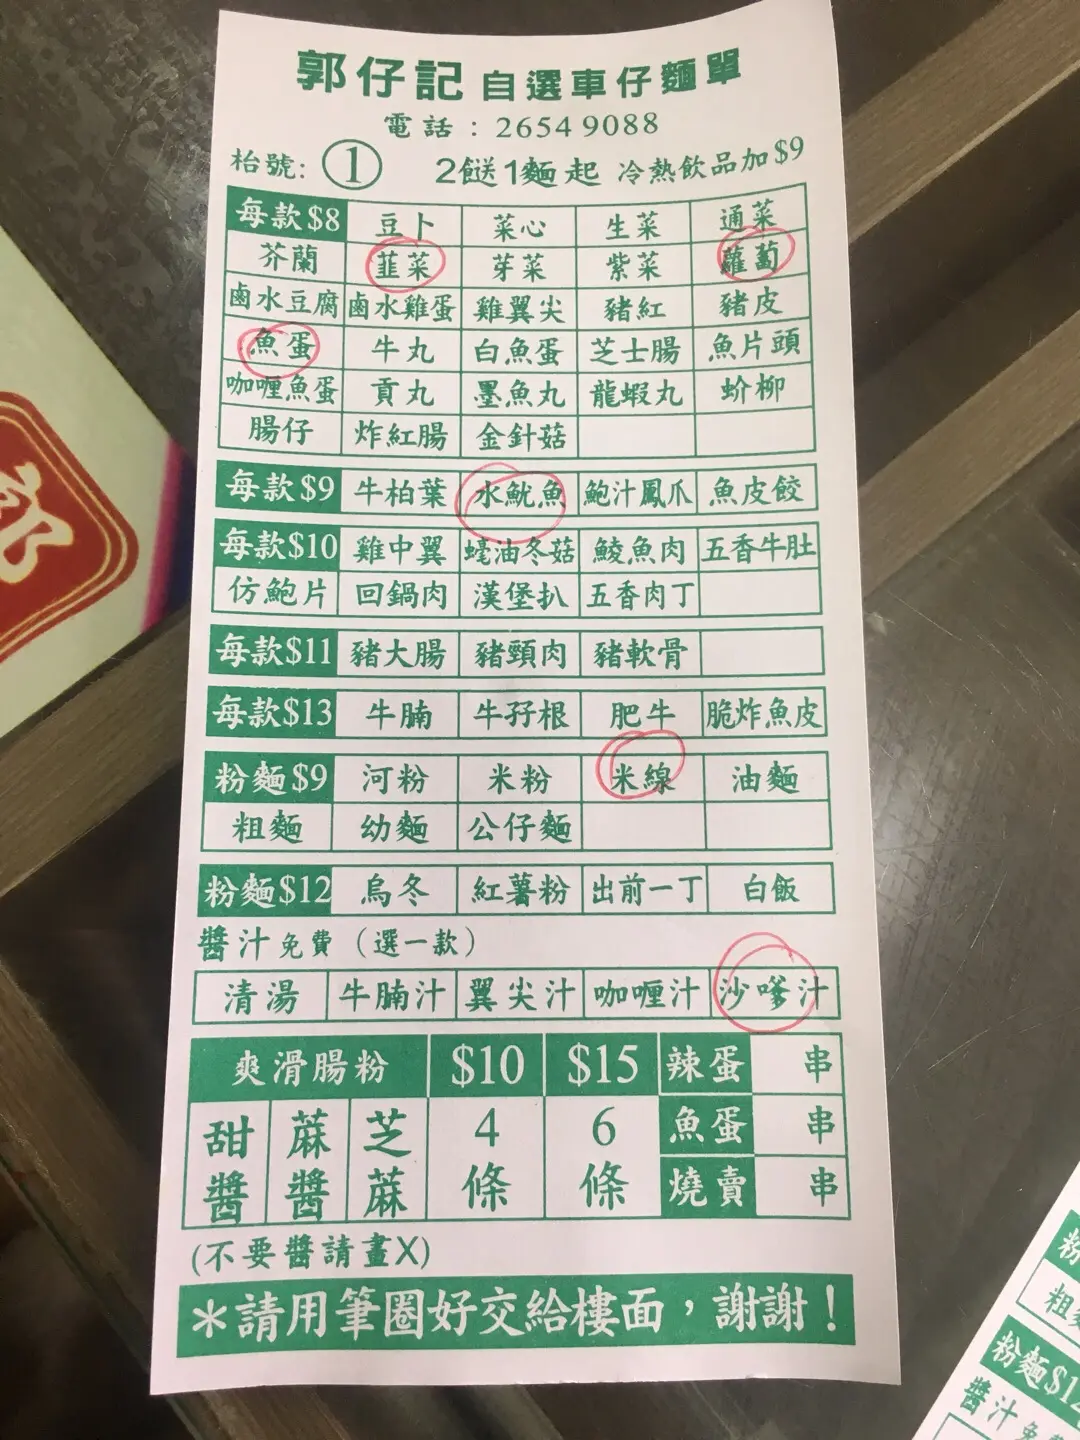 郭仔記 自選車仔麵單
電話：2654 9088
枱號: 1 2餸1麵起 冷熱飲品加$9
每款$8 豆卜 菜心 生菜 通菜
芥蘭 韮菜 芽菜 紫菜 蘿蔔
鹵水豆腐 鹵水雞蛋 雞翼尖 豬紅 豬皮
魚蛋 牛丸 白魚蛋 芝士腸 魚片頭
咖喱魚蛋 貢丸 墨魚丸 龍蝦丸 蚧柳
腸仔 炸紅腸 金針菇
每款$9 牛柏葉 水魷魚 鮑汁鳳爪 魚皮餃
每款$10 雞中翼 蠔油冬菇 鯪魚肉 五香牛肚
仿鮑片 回鍋肉 漢堡扒 五香肉丁
每款$11 豬大腸 豬頸肉 豬軟骨
每款$13 牛腩 牛孖根 肥牛 脆炸魚皮
粉麵$9 河粉 米粉 米線 油麵
粗麵 幼麵 公仔麵
粉麵$12 烏冬 紅薯粉 出前一丁 白飯
醬汁免費（選一款）
清湯 牛腩汁 翼尖汁 咖喱汁 沙嗲汁
爽滑腸粉 $10 $15 辣蛋 串
甜醬 蔴醬 芝蔴 4條 6條 魚蛋 串
燒賣 串
(不要醬請畫X)
＊請用筆圈好交給樓面，謝謝！
郭
粉
粗
粉麵$12
醬汁免